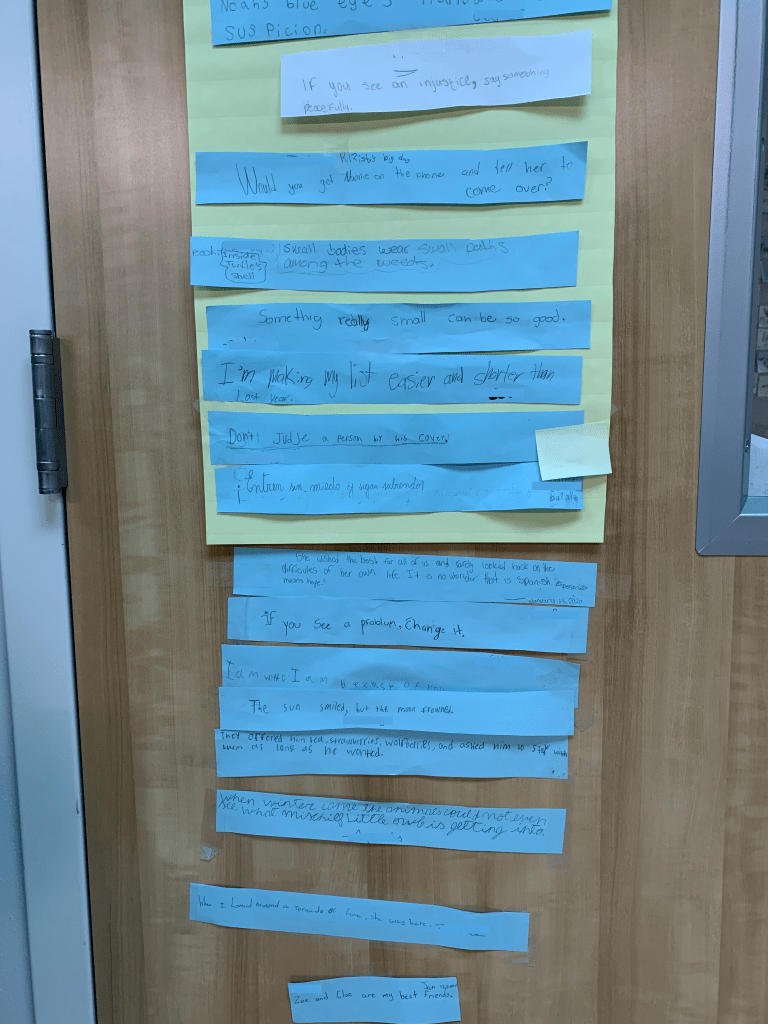 Noahs blue eye's
susPicion.
If you see an injustice, say something
peacefully.
KiRista's big dog
Would you get Marie on the phone and tell her to
come over?
small bodies wear small paths
among the weeds.
inside
Turtle's
shell
Somethig really small can be so good.
I'm making my list easier and shorter than
Last year.
Don't Judje a person by his cover!
¡Entran sin miedo y sigan
batalla
She wished the best for all of us and rarely looked back on the
dificules of her own life. It is no wonder that is Spanish
means hope."
January 13, 2020
If you see a problum, Change it.
I am who I am because of
The sun smiled, but the moon frowned.
They offered him tea, strawberries, wolfberries, and asked him to stay with
them as long as he wanted.
When winter came the animales could not even
see what mischeif little owl is getting into.
When I looked around a tornado of fire, she was here.
Zoe and Cloe are my best friends.